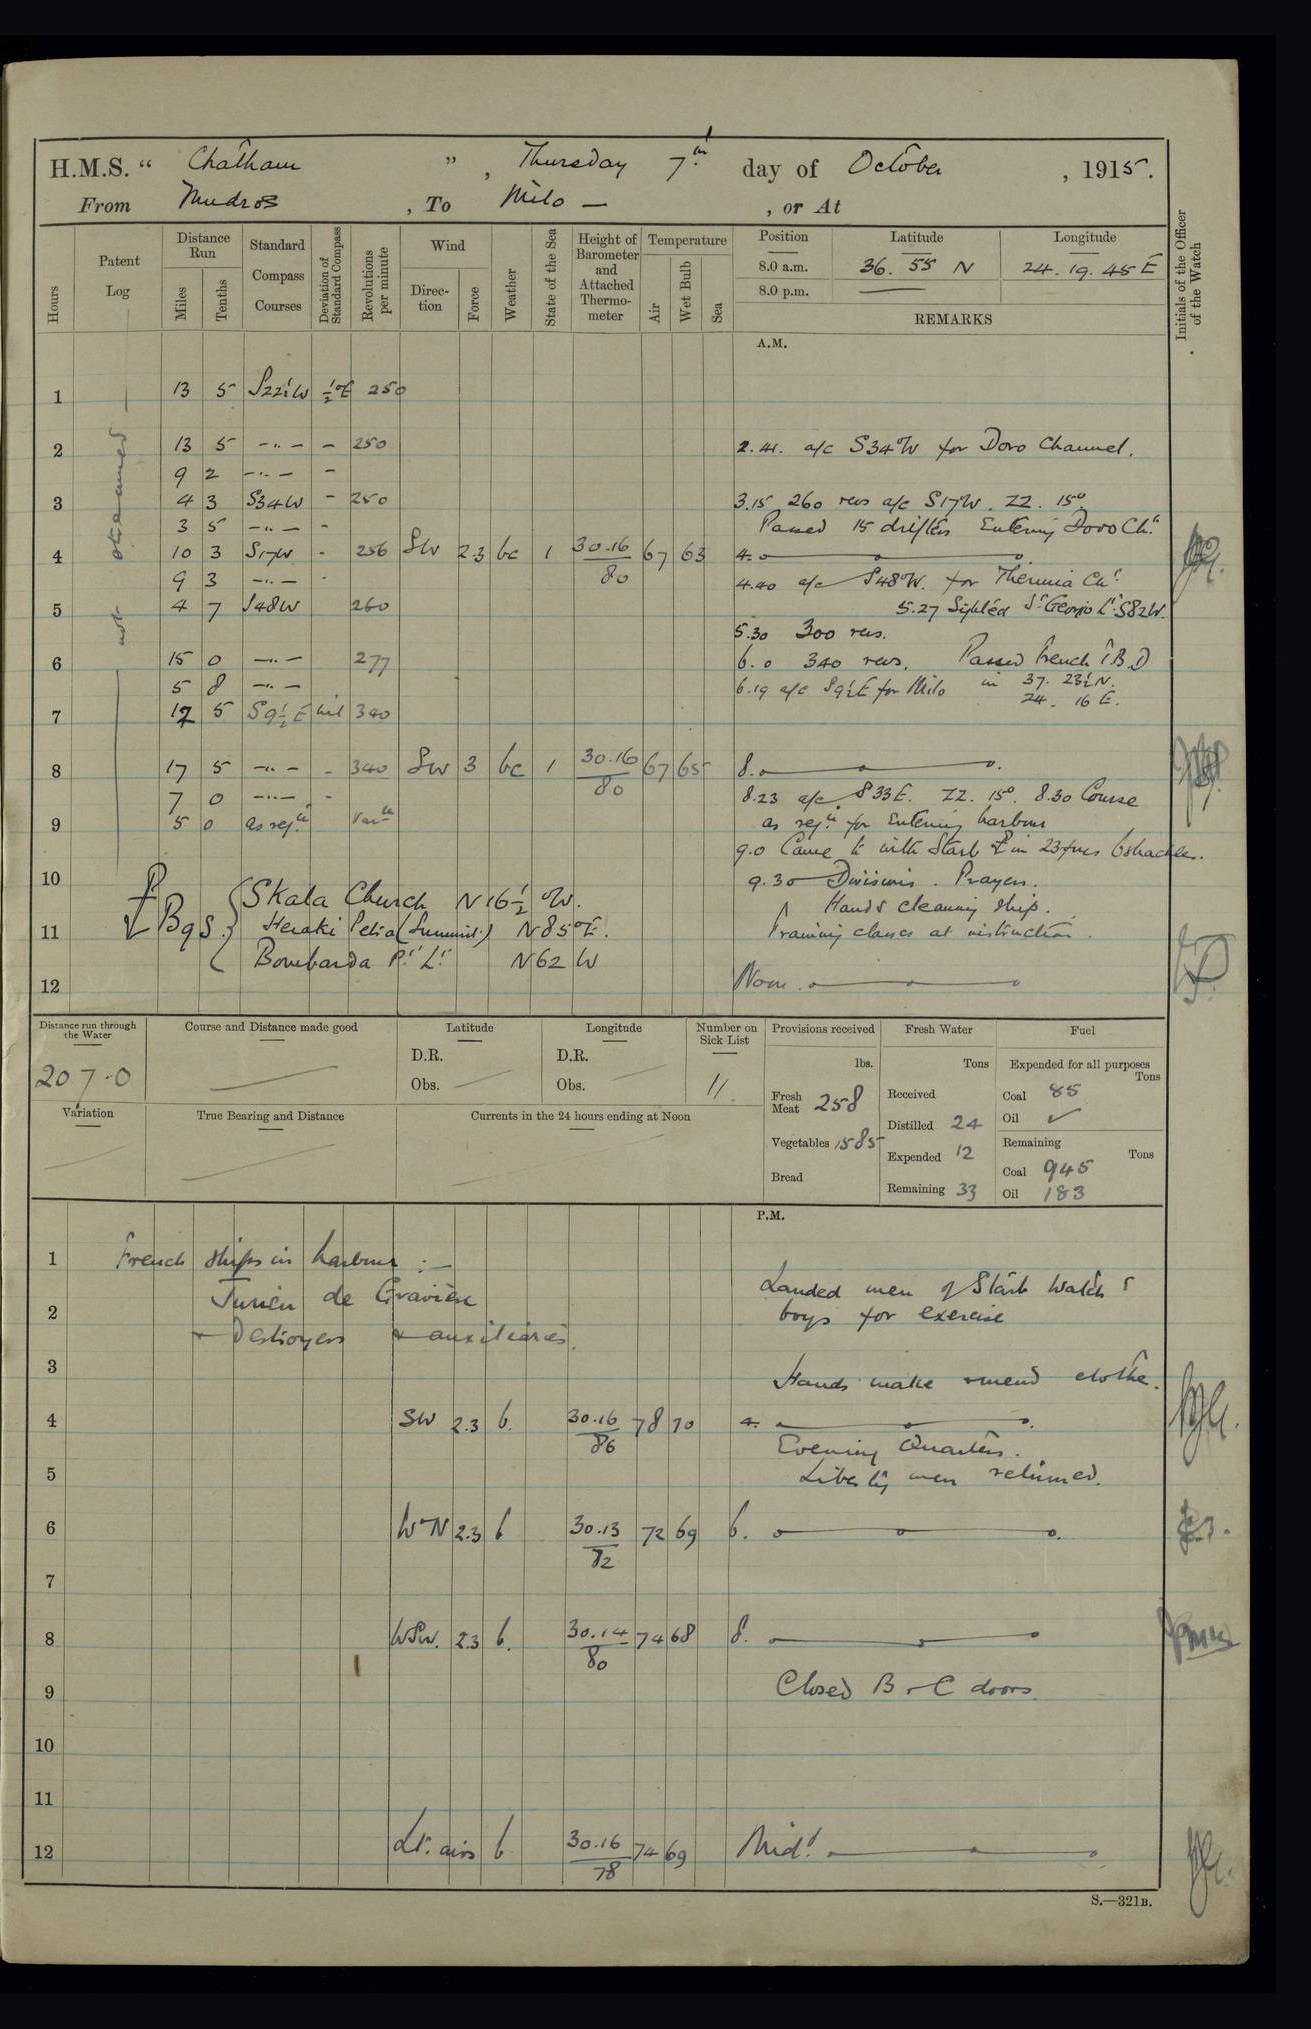 H.M.S. “ Chatham ” , Thursday 7th day of October , 1915.
From Mudros , To Milo — , or At
Hours
Patent Log
Distance Run
Miles
Tenths
Standard Compass Courses
Deviation of Standard Compass
Revolutions per minute
Wind
Direction
Force
Weather
State of the Sea
Height of Barometer and Attached Thermometer
Temperature
Air
Wet Bulb
Sea
Position Latitude Longitude
8.0 a.m. 36. 55 N 24. 19. 45 E
8.0 p.m. —
REMARKS
Initials of the Officer of the Watch
A.M.
not streamed
1 13 5 S22½W ½°E 250
2 13 5 -"- - 250 2.41. a/c S34°W for Doro Channel.
9 2 -"- -
3 4 3 S34W - 250 3.15 260 revs a/c S17W. ZZ. 15°
3 5 -"- - Passed 15 drifters Entering Doro Chl
4 10 3 S17W - 256 SW 2.3 bc 1 30.16/80 67 63 4.
9 3 -"- - 4.40 a/c S48°W. for Thermia Chl
5 4 7 S48W 260 5.27 Sighted St Georgio Lt S82W.
5.30 300 revs.
6 15 0 -"- 277 6.0 340 revs. Passed French T.B.D
5 8 -"- 6.19 a/c S9½E for Milo in 37. 23½N.
24. 16 E.
7 17 5 S9½E nil 340
8 17 5 -"- - 340 SW 3 bc 1 30.16/80 67 65 8.
7 0 -"- - 8.23 a/c S33E. ZZ. 15°. 8.30 Course
9 5 0 as reqd as reqd for Entering harbour
9.0 Came to with Starb in 23 fms 6 shackles.
10 9.30 Divisions. Prayers.
Skala Church N16½°W.
Hands cleaning ship.
11 Bgs. Heraki Petia (Summit) N85°E. Training classes at instruction.
Bombarda Pt Lt N62W
12 Noon
Distance run through the Water
207.0
Course and Distance made good
Latitude
D.R.
Obs.
Longitude
D.R.
Obs.
Number on Sick List
11.
Variation
True Bearing and Distance
Currents in the 24 hours ending at Noon
Provisions received
lbs.
Fresh Meat 258
Vegetables 1585
Bread
Fresh Water
Tons
Received
Distilled 24
Expended 12
Remaining 33
Fuel
Expended for all purposes
Tons
Coal 85
Oil ✓
Remaining
Tons
Coal 945
Oil 183
P.M.
1 French Ships in harbour :—
Jurien de Gravière Landed men of Starb Watch &
2 boys for exercise
+ Destroyers + auxiliaries.
3 Hands make + mend clothes.
4 SW 2.3 b. 30.16/86 78 70 4.
Evening Quarters.
5 Liberty men returned.
6 WN 2.3 b 30.13/82 72 69 6.
7
8 WSW. 2.3 b. 30.14/80 74 68 8.
9 Closed B + C doors.
10
11
12 Lt. airs b 30.16/78 74 69 Midt
S.—321B.